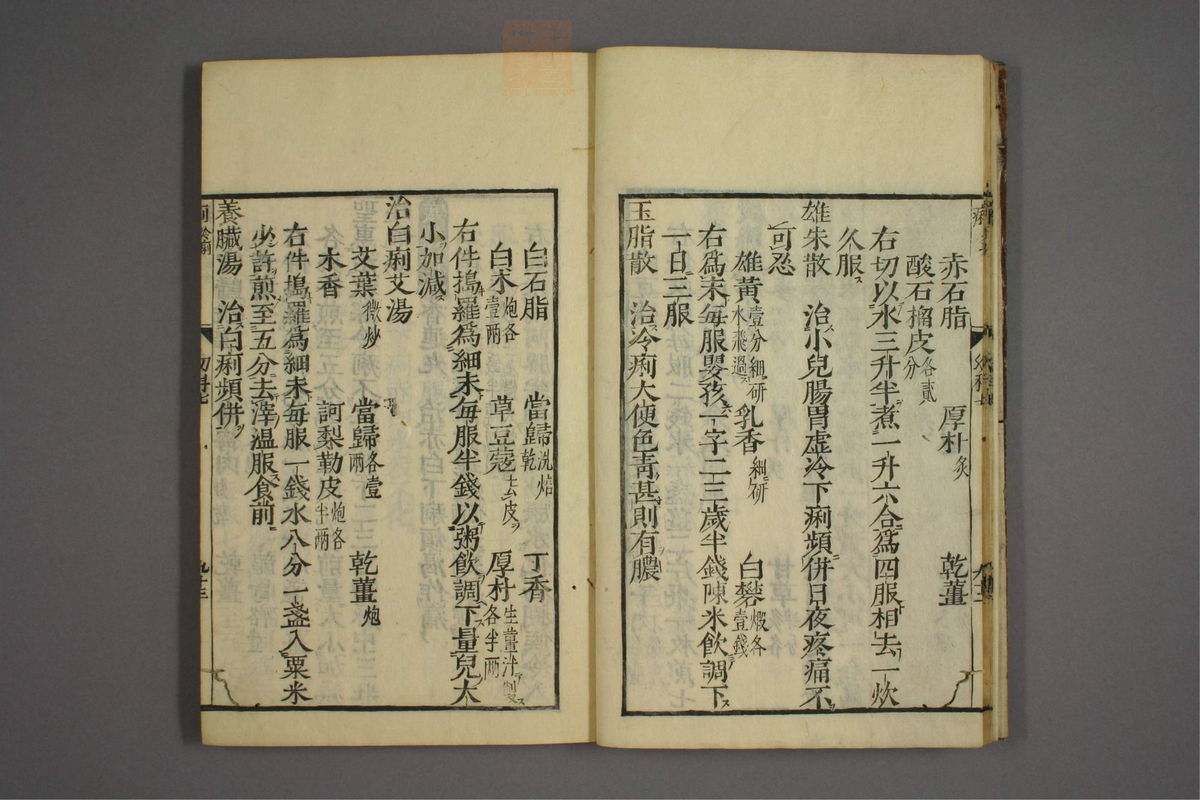 赤石脂 厚朴炙 乾薑
酸石榴皮各貳分
右切以水三升半煮一升六合爲四服相去一炊
久服
雄朱散 治小兒腸胃虛冷下痢頻併日夜疼痛不
可忍
雄黃壹分細研水飛過 乳香細研 白礬煅各壹錢
右爲末每服嬰孩一字二三歲半錢陳米飲調下
一日三服
玉脂散 治冷痢大便色靑甚則有膿
白石脂 當歸洗焙乾 丁香
白朮炮各壹兩 草豆蔻去皮 厚朴生薑汁製各半兩
右件搗羅爲細末每服半錢以粥飲調下量兒大
小加減
治白痢艾湯
艾葉微炒 當歸各壹兩 乾薑炮
木香 訶梨勒皮炮各半兩
右件搗羅爲細末每服一錢水八分一盞入粟米
少許煎至五分去滓溫服食前
養臟湯 治白痢頻併